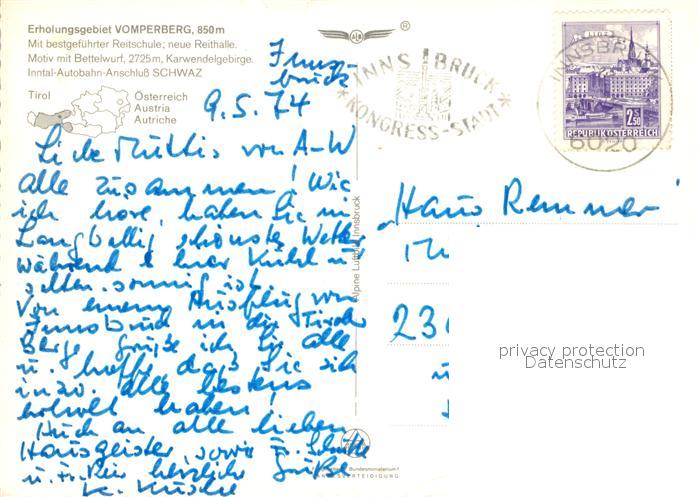 Erholungsgebiet VOMPERBERG, 850m
Mit bestgeführter Reitschule; neue Reithalle.
Motiv mit Bettelwurf, 2725m, Karwendelgebirge.
Inntal-Autobahn-Anschluß SCHWAZ
Tirol
Österreich
Austria
Autriche
®
INNSBRUCK
KONGRESS-STADT
INNSBR
6020
2.50
REPUBLIK ÖSTERREICH
Inns-
bruck
9.5.74
Liebe Muttis von A-W
alle zusammen! Wie
ich höre, haben Sie in
Langballig schönstes Wetter
während es hier kühl u.
selten sonnig ist.
Von einem Ausflug von
Innsbruck in die Tiroler
Berge grüße ich Sie alle
u. hoffe daß Sie sich
inzw. alle bestens
erholt haben!
Auch an alle lieben
Hausgeister, sowie
u. Fr. herzliche Grüße
Alpine Luftbild Innsbruck
„Haus Remmer
23
privacy protection
Datenschutz
Bundesministerium f
LANDESVERTEIDIGUNG